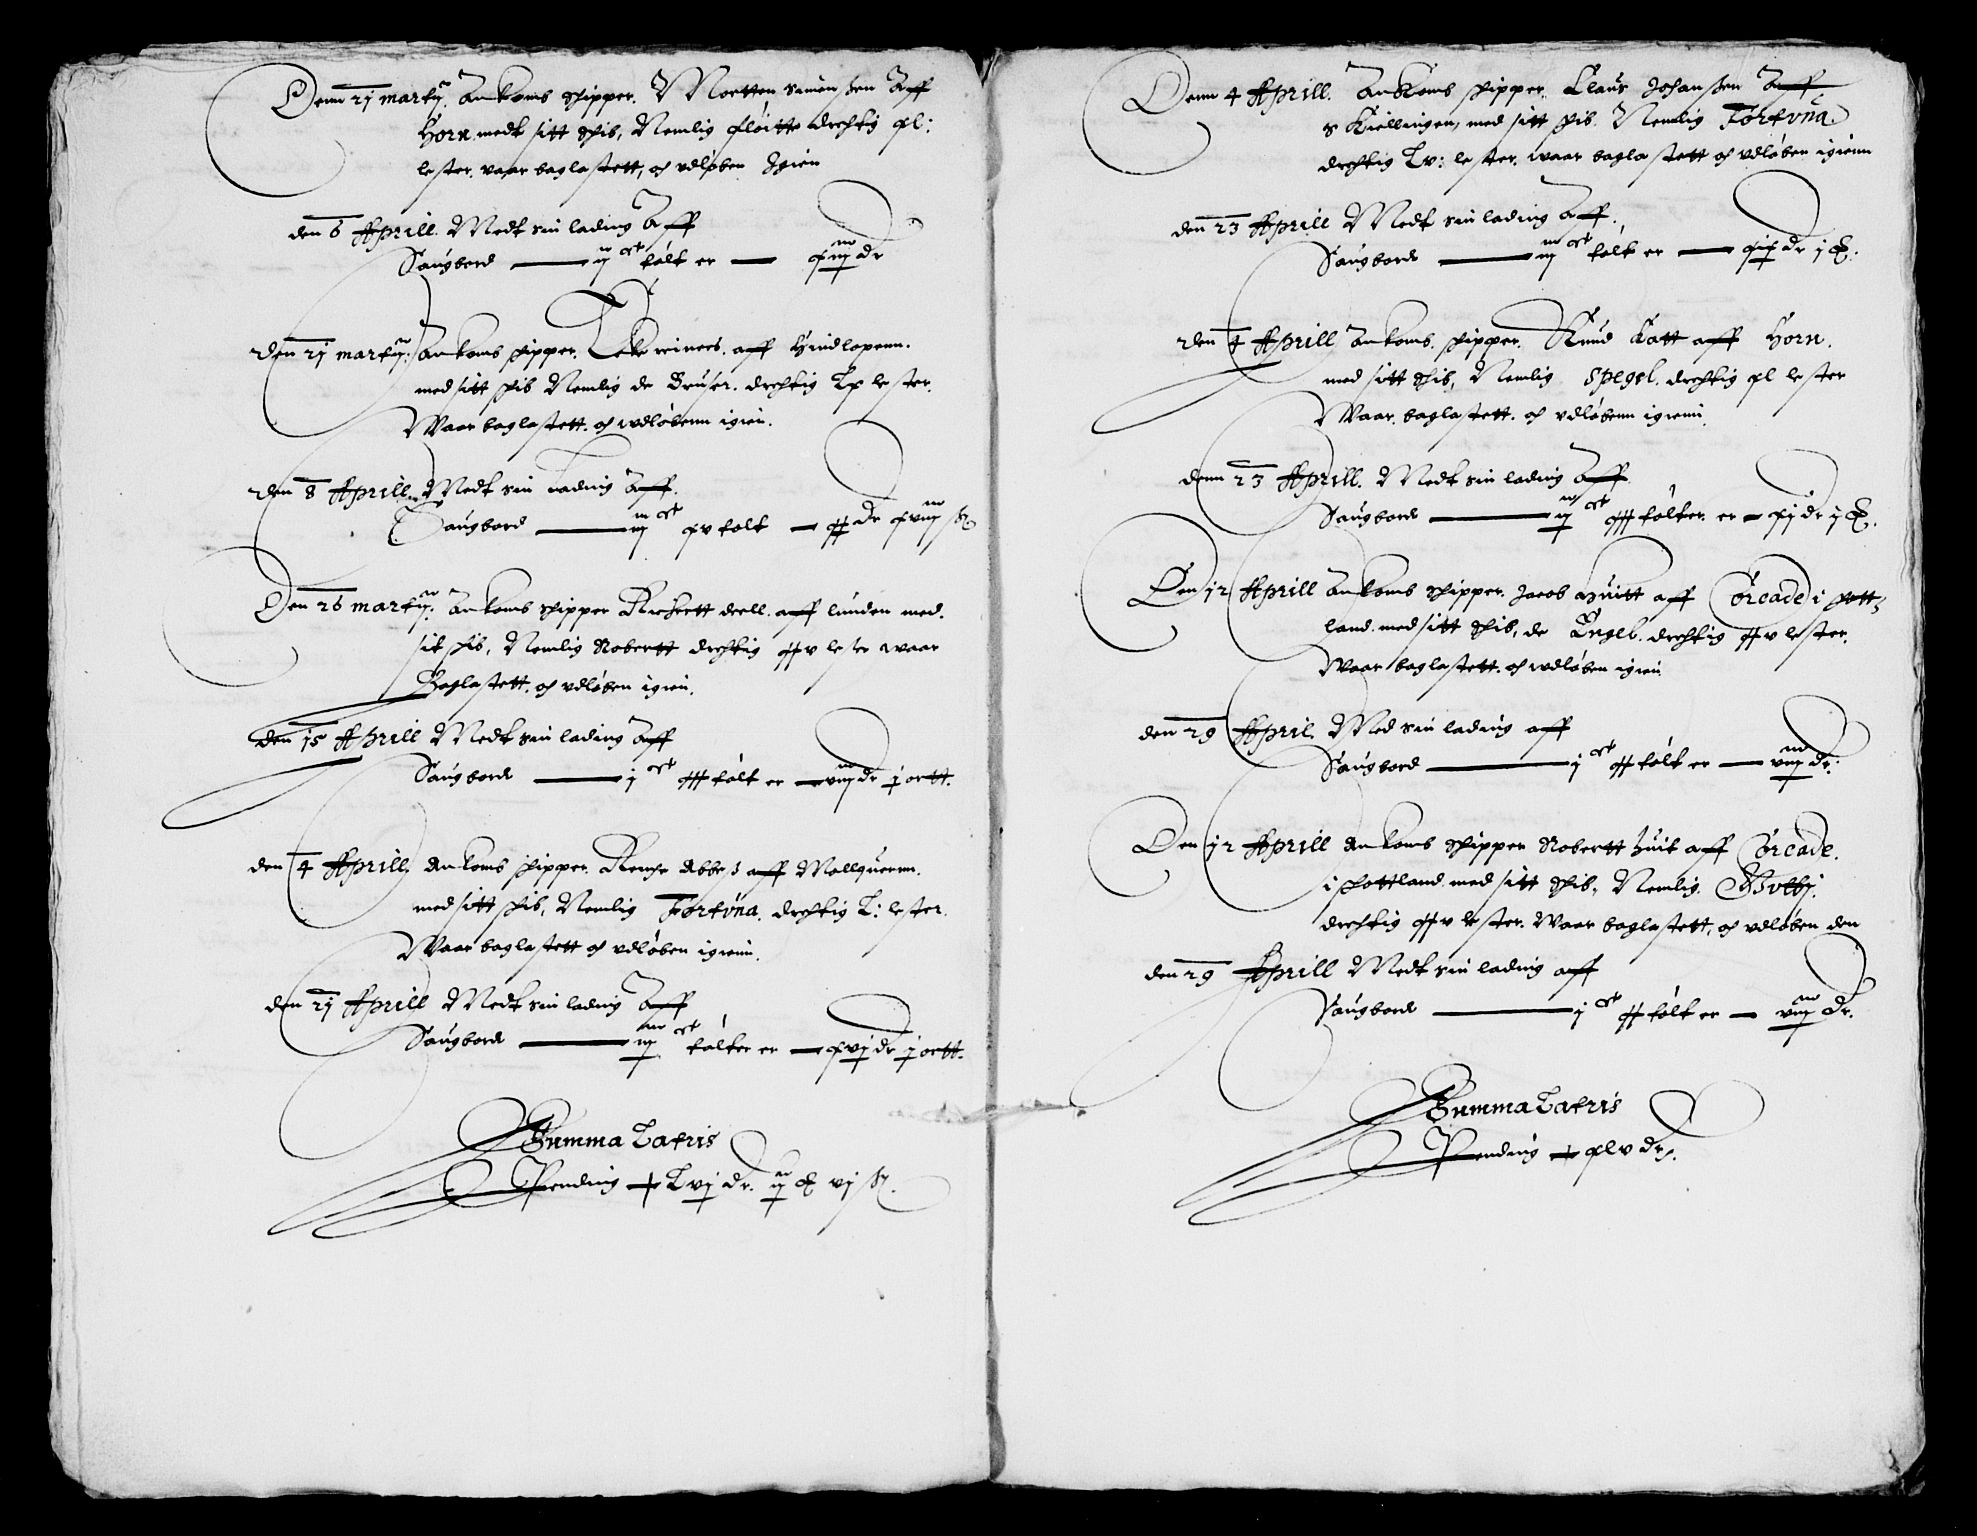 Denn 21 martij. Ankomb schipper. Mortten simenssen Aff
Horn medt sitt schib, Nemlig fløitte drechtig xl:
lester. vaar baglastett, och vdløben Igien
den 6 Aprill. Medt sin lading Aff
Saugbord — ij Ct tolt er — xiiij dr
den 21 martij: Ankomb schipper. reiners. aff Hindlopenn.
med sitt schib Nemlig de Bruser. drechtig Lx lester.
Waar baglastett. och wdløbenn igien.
den 8 Aprill. Medt sin ladning Aff.
Saugbord — iij Ct xv tolt — xx dr xviij sk
Den 26 martij: Ankomb schipper Richertt deell. aff lunden med.
sit schib, Nemlig Robertt drechtig xxv lester waar
Baglastett. och vdløben igien.
den 15 Aprill Medt sin lading Aff
Saugbord — j Ct xxx tolt er — viiij dr j ortt.
den 4 Aprill. Ankomb schipper. Abbes aff Mollquerrn.
med sitt schib, Nemlig Fortuna. drechtig L: lester.
Waar baglastett och vdløben igienn.
den 21 Aprill Medt sin lading Aff
Saugbord — iij Ct tolter er — xvj dr j ortt.
Summa Latris
Pending — Lxvj dr. ij vj sk.
Denn 4 Aprill. Ankomb schipper. Claus Johanssen Aff
med sitt schib. Nemlig Fortuna
drechtig Lv: lester. waar baglastett och vdløben igienn
denn 23 Aprill Medt sin lading Aff.
Saugbord — iij Ct tolt er — xix dr j
den 4 Aprill Ankomb. schipper. Knud Katt aff Horn.
med sitt schib, Nemlig Spegel. drechtig xl lester
Waar. baglastett. och vdløbenn igienn.
denn 23 Aprill. Medt sin lading Aff
Saugbord — ij Ct xxx tolter er — xj dr j
Den 12 Aprill Ankomb schipper. Jacob Huitt aff Orcade i skott
land. med sitt schib, de Engel. drechtig xxv lester.
Waar baglastett. och wdløben igien.
den 29 April. Med sin lading aff
Saugbord — j Ct xx tolt er — viij dr.
Den 12 Aprill Ankomb schipper Robertt huit aff Orcade.
i skottland med sitt schib, Nemlig
drechtig xxv lester. Waar baglastett, och vdløben den
den 29 Aprill Medt sin lading aff
Saugbord — j Ct xx tolt er — viij dr.
Summa Latris
Pending — xlv dr.